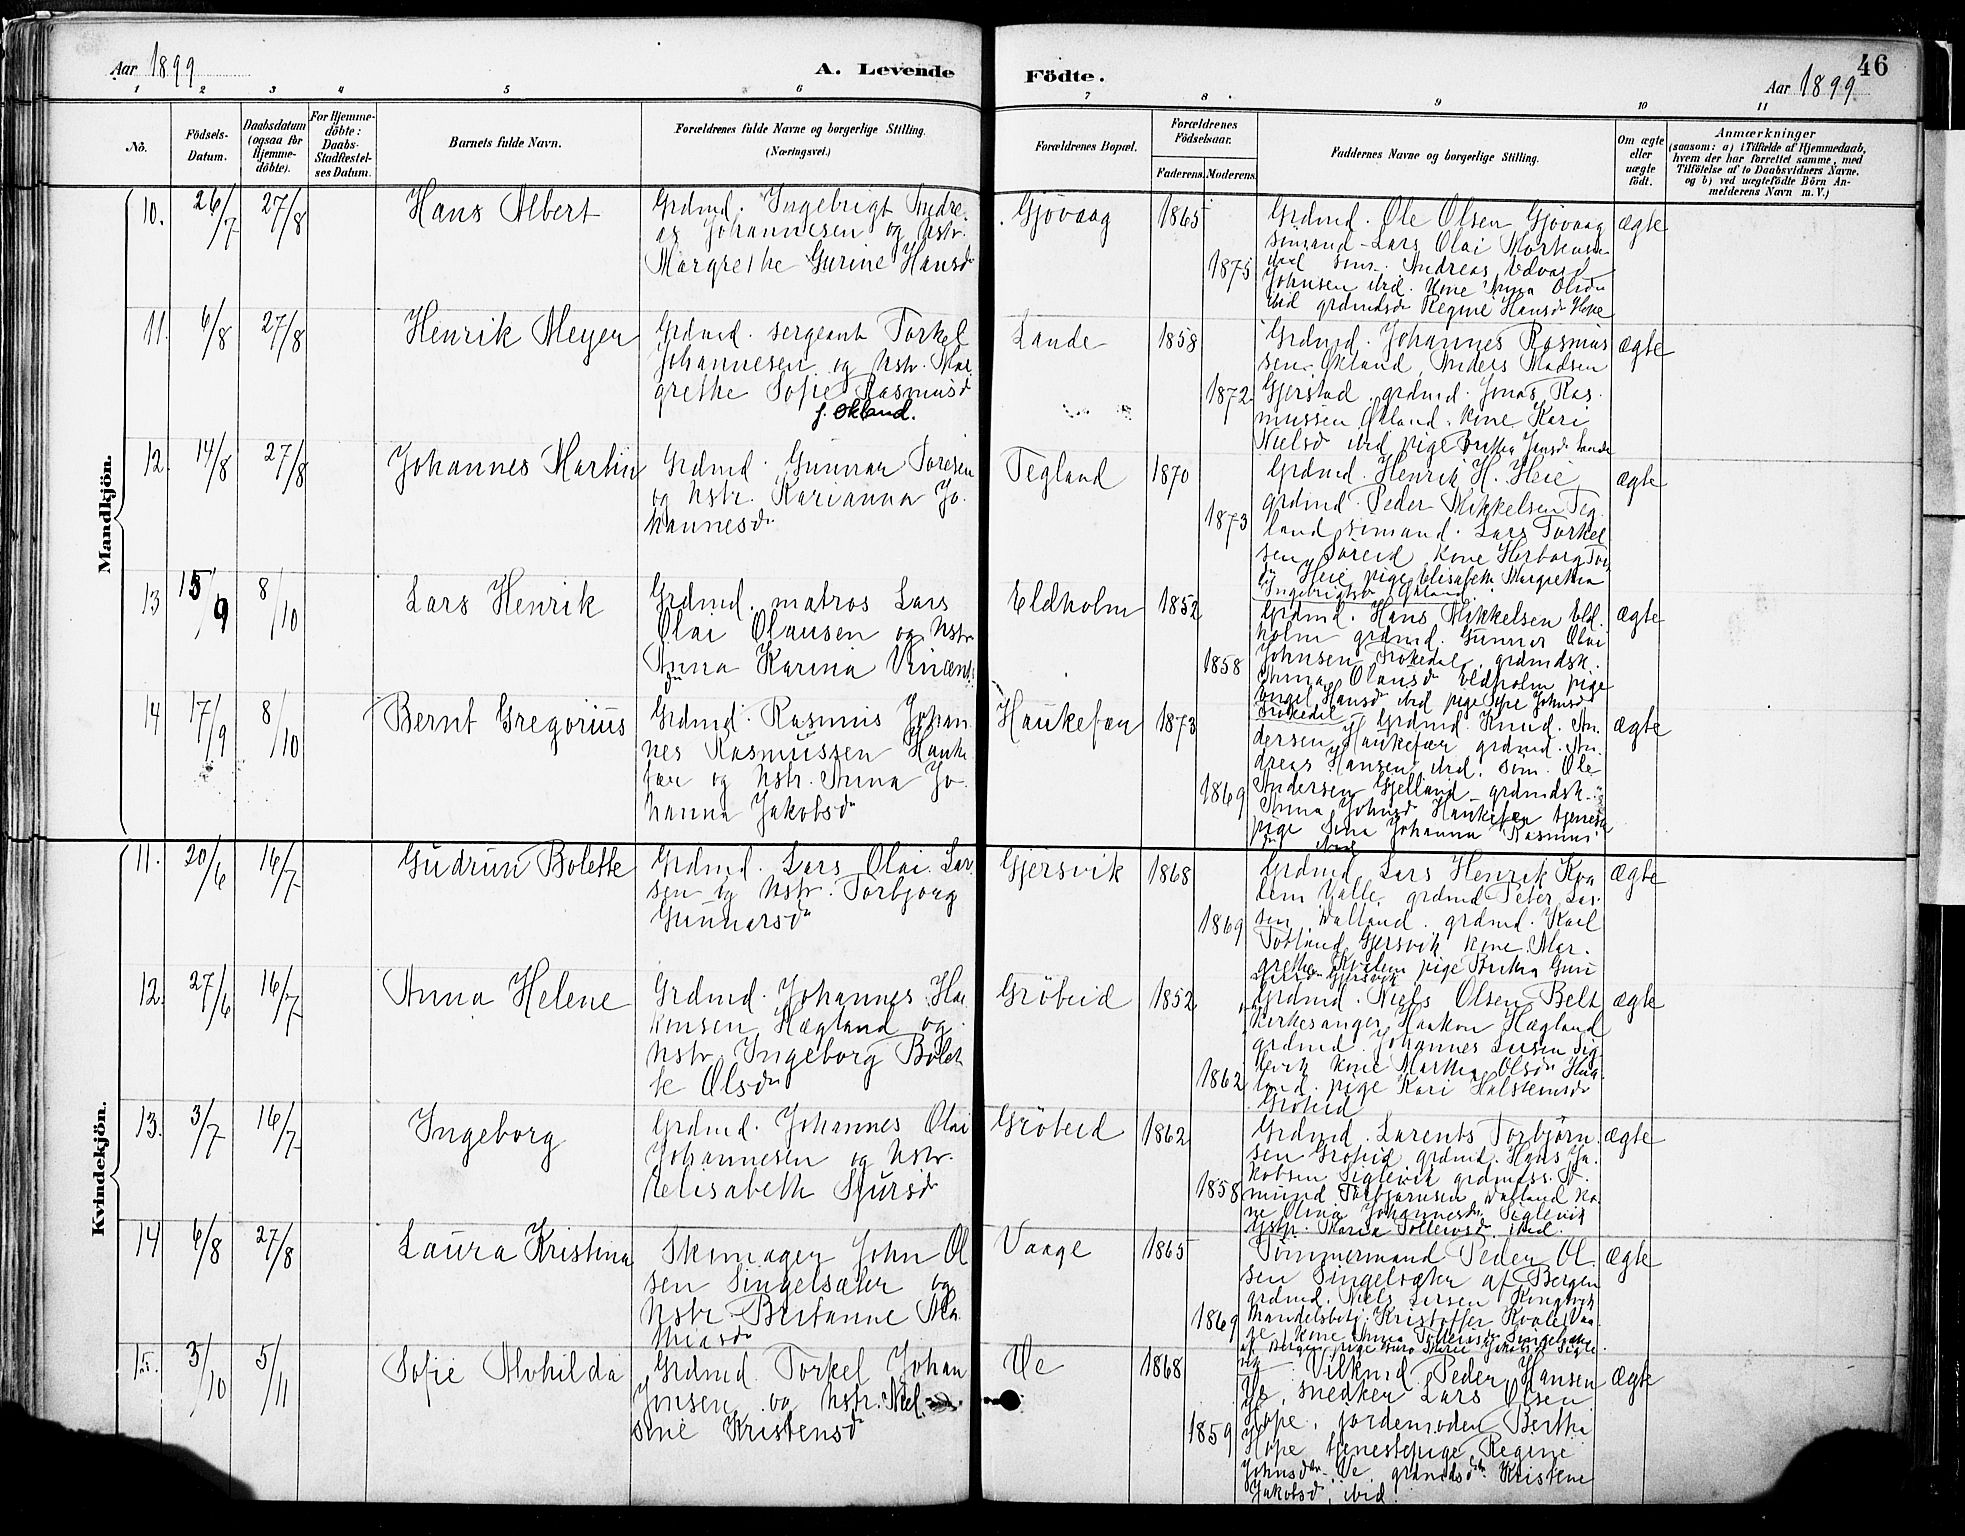 Aar 1899
A. Levende
Födte.
46
Aar 1899
1 2 3 4 5 6 7 8 9 10 11
No.
Födsels-
Datum.
Daabsdatum
(ogsaa for
Hjemme-
döbte).
For Hjemme-
döbte:
Daabs-
Stadfæstel-
ses Datum.
Barnets fulde Navn.
Forældrenes fulde Navne og borgerlige Stilling.
(Næringsvei.)
Forældrenes Bopæl.
Forældrenes
Födselsaar.
Faderens. Moderens.
Faddernes Navne og borgerlige Stilling.
Om ægte
eller
uægte
födt.
Anmærkninger
(saasom: a) i Tilfælde af Hjemmedaab,
hvem der har forrettet samme, med
Tilföielse af to Daabsvidners Navne,
og b) ved uægtefödte Börn An-
melderens Navn m.V.)
Mandkjön.
10. 26/7 27/8
Hans Albert
Grdmd. Ingebrigt Andre-
as Johannesen og hstr.
Margrethe Gurine Hansdr
Gjövaag
1865
1875
Grdmd. Ole Olsen Gjövaag
sömand Lars Olai
söm. Andreas Edvard
Johnsen ibid. kone Anna Olsdr
ibid grdmdsdr Regine Hansdr Hope
ægte
11. 6/8 27/8
Henrik Meyer
Grdmd. sergeant Torkel
Johannesen og hstr. Mar
grethe Sofie Rasmusd
f. Økland.
Lande
1858
1872
Grdmd. Johannes Rasmus
sen Økland Anders Madsen
Gjerstad grdmd. Jonas Ras
mussen Økland. kone Kari
Nielsd ibid pige Jensdr Lande
ægte
12. 14/8 27/8
Johannes Martin
Grdmd. Gunnar Toresen
og hstr. Karianna Jo-
hannesdr
Tegland
1870
1873
Grdmd. Henrik H. Heie
grdmd. Peder Mikkelsen Teg
land sömand. Lars Torkel
sen Söreid kone Herborg
Heie pige Elisabeth Margretha
Ingebrigtsdr
ægte
13 15/9 8/10
Lars Henrik
Grdmd. matros Lars
Olai Olausen og hstr
Anna Karina
dr
Eldholm
1852
1858
Grdmd. Hans Mikkelsen Eld-
holm grdmd. Gunnar Olai
Johnsen Trokedal grdmdsk.
Anna Olausdr Eldholm pige
Hansdr ibid pige Johnsd
Trokedal
ægte
14 17/9 8/10
Bernt Gregorius
Grdmd. Rasmus Johan-
nes Rasmussen Hauke
fær og hstr. Anna Jo-
hanna Jakobsdr
Haukefær
1873
1869
Grdmd. Knud An-
dersen Haukefær grdmd. An-
dreas Hansen ibid. söm. Ole
Andersen Gjelland grdmdsk.
Anna Johnsd Haukefær tjeneste
pige Johanna Rasmus
dr ibid
ægte
Kvindekjön.
11. 20/6 16/7
Gudrun Bolette
Grdmd. Lars Olai Lar
sen og hstr. Torbjorg
Gunnarsdr
Gjersvik
1868
1869
Grdmd. Lars Henrik Kva
lem Valle grdmd Peter Lar
sen Dalland. grdmd. Karl
Totland Gjersvik kone Mar-
grethe Kvalem pige Gun
Gjersvik
ægte
12. 27/6 16/7
Anna Helene
Grdmd. Johannes Haa
konsen Hægland og
hstr Ingeborg Bolet
te Olsdr
Gröteid
1852
1862
Grdmd. Niels Olsen Belt
kirkesanger Haakon Hægland
grdmd. Johannes Larsen Sig
levik kone Martha Olsdr Hæg
land. pige Kari Halsteinsdr
Gröteid
ægte
13. 3/7 16/7
Ingeborg
Grdmd. Johannes Olai
Johannesen og hstr.
Elisabeth Sjursdr
Gröteid
1862
1858
Grdmd. Larents Torbjörn
sen Gröteid grdmd. Hans Ja-
kobsen Siglevik grdmdss.
mund Torbjörnsen Dalland ko-
ne Olina Johannesdr Siglevik
Maria Tollevsd. ibid.
ægte
14 6/8 27/8
Laura Kristina
Skomager John Ol
sen Singelsæter og
hstr. Beritanne Ma
thiasdr
Vaage
1865
1869
Tömmermand Peder Ol-
sen Singelsæter af Bergen
grdmd. Niels Larsen Kongsvik
handelsbetj. Kristoffer Kvale Vaa
ge, kone Anna Singelsæter
af Bergen pige Marie Jakobsd Sigle
vik
ægte
15. 3/10 5/11
Sofie Alvhilda
Grdmd. Torkel Johan
Jonsen og hstr. Niel
sine Kristensd
Ve
1868
1859
Peder Hansen
Ve, snedker Lars Olsen
Hope, jordemoder Bertha
Hope tjenestepige Regine
Johnsdr Ve grdmdsdtr Kristene
Jakobsd. ibid.
ægte